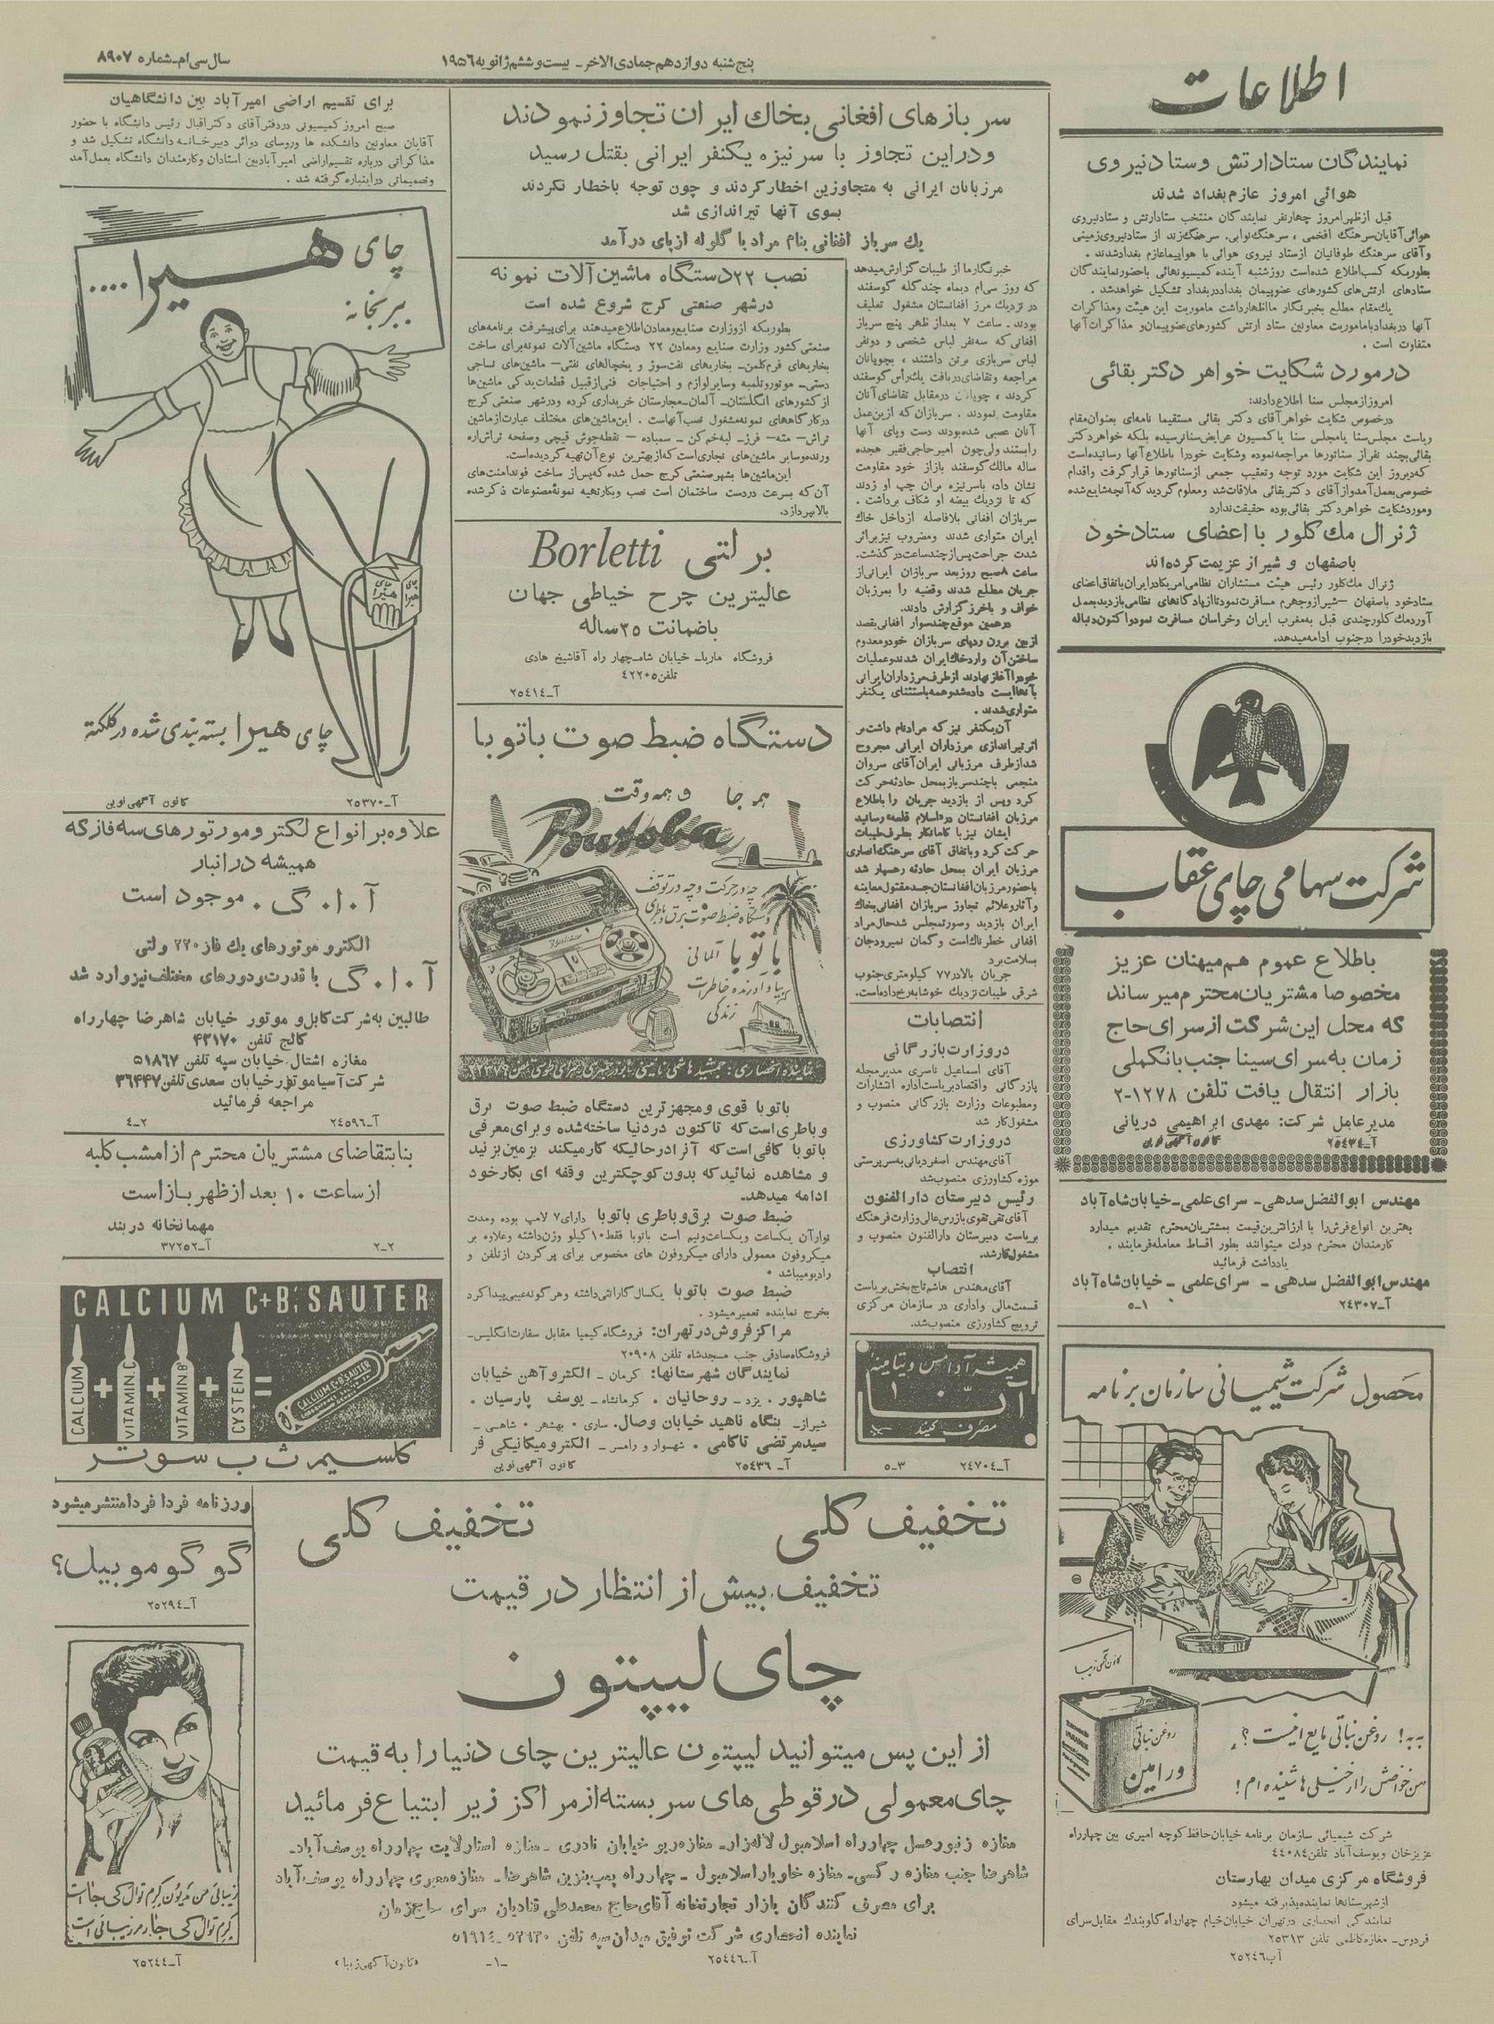 سال سی‌ام ـ شماره ۸۹۰۷
پنج‌شنبه دوازدهم جمادی‌الاخر ـ بیست و ششم ژانویه ۱۹۵۶
اطلاعات
نمایندگان ستاد ارتش و ستاد نیروی
هوائی امروز عازم بغداد شدند
قبل از ظهر امروز چهار نفر نمایندگان منتخب ستاد ارتش و ستاد نیروی
هوائی آقایان سرهنگ افخمی ، سرهنگ نوابی، سرهنگ زند از ستاد نیروی زمینی
و آقای سرهنگ طوفانیان از ستاد نیروی هوائی با هواپیما عازم بغداد شدند .
بطوریکه کسب اطلاع شده است روز شنبه آینده کمیسیونهائی با حضور نمایندگان
ستادهای ارتش‌های کشورهای عضو پیمان بغداد در بغداد تشکیل خواهد شد .
یك مقام مطلع بخبرنگار ما اظهار داشت ماموریت این هیئت و مذاکرات
آنها در بغداد با ماموریت معاونین ستاد ارتش کشورهای عضو پیمان و مذاکرات آنها
متفاوت است .
در مورد شکایت خواهر دکتر بقائی
امروز از مجلس سنا اطلاع دادند:
در خصوص شکایت خواهر آقای دکتر بقائی مستقیما نامه‌ای بعنوان مقام
ریاست مجلس سنا یا مجلس سنا یا کمسیون عرایض سنا نرسیده بلکه خواهر دکتر
بقائی بچند نفر از سناتورها مراجعه نموده و شکایت خود را باطلاع آنها رسانیده است
که دیروز این شکایت مورد توجه و تعقیب جمعی از سناتورها قرار گرفت و اقدام
خصوصی بعمل آمد و از آقای دکتر بقائی ملاقات شد و معلوم گردید که آنچه شایع شده
و مورد شکایت خواهر دکتر بقائی بوده حقیقت ندارد
ژنرال مك کلور با اعضای ستاد خود
باصفهان و شیراز عزیمت کرده اند
ژنرال مك کلور رئیس هیئت مستشاران نظامی امریکا در ایران باتفاق اعضای
ستاد خود باصفهان ـ شیراز و جهرم مسافرت نمود تا از پادگانهای نظامی بازدید بعمل
آورد مك کلور چندی قبل به مغرب ایران و خراسان مسافرت نمود و اکنون دنباله
بازدید خود را در جنوب ادامه میدهد.
شرکت سهامی چای عقاب
باطلاع عموم هم‌میهنان عزیز
مخصوصا مشتریان محترم میرساند
که محل این شرکت از سرای حاج
زمان به سرای سینا جنب بانك ملی
بازار انتقال یافت تلفن ۱۲۷۸-۲
مدیر عامل شرکت: مهدی ابراهیمی دریانی
آ-۲۵۴۳۴ کانون آگهی نوین
مهندس ابوالفضل سدهی ـ سرای علمی ـ خیابان شاه آباد
بهترین انواع فرش را با ارزانترین قیمت بمشتریان محترم تقدیم میدارد
کارمندان محترم دولت میتوانند بطور اقساط معامله فرمایند .
یادداشت فرمائید
مهندس ابوالفضل سدهی ـ سرای علمی ـ خیابان شاه آباد
آ-۲۴۳۰۷ ۱-۵
محصول شرکت شیمیائی سازمان برنامه
کانون آگهی زیبا
روغن نباتی
ورامین
به به! روغن نباتی مایع اینست ؟
من خواصش را از خیلی ها شنیده ام !
شرکت شیمیائی سازمان برنامه خیابان حافظ کوچه امیری بین چهارراه
عزیزخان و یوسف آباد تلفن ۴۴۰۸۴
فروشگاه مرکزی میدان بهارستان
از شهرستانها نماینده پذیرفته میشود
نمایندگی انحصاری در تهران خیابان خیام چهارراه گلوبندك مقابل سرای
فردوس ـ مغازه کاظمی تلفن ۲۵۳۱۳
آب ۲۵۲۴۶
سربازهای افغانی بخاك ایران تجاوز نمودند
و در این تجاوز با سر نیزه یکنفر ایرانی بقتل رسید
مرزبانان ایرانی به متجاوزین اخطار کردند و چون توجه باخطار نکردند
بسوی آنها تیراندازی شد
یك سرباز افغانی بنام مراد با گلوله از پای درآمد
خبرنگار ما از طیبات گزارش میدهد
که روز سی‌ام دیماه چند گله گوسفند
در نزدیك مرز افغانستان مشغول تعلیف
بودند . ساعت ۷ بعد از ظهر پنج سرباز
افغانی که سه نفر لباس شخصی و دو نفر
لباس سربازی برتن داشتند ، بچوپانان
مراجعه و تقاضای دریافت یك راس گوسفند
کردند ، چوپانان در مقابل تقاضای آنان
مقاومت نمودند . سربازان که از این عمل
آنان عصبی شده بودند دست و پای آنها
را بستند ولی چون امیر حاجی فقیر هجده
ساله مالك گوسفند بازار خود مقاومت
نشان داد، با سرنیزه بران چپ او زدند
که تا نزدیك بیضه او شکاف برداشت .
سربازان افغانی بلافاصله از داخل خاك
ایران متواری شدند و مضروب نیز براثر
شدت جراحت پس از چند ساعت در گذشت.
ساعت ۸ صبح روز بعد سربازان ایرانی از
جریان مطلع شدند و قضیه را بمرزبان
خواف و باخرز گزارش دادند.
در همین موقع چند سوار افغانی بقصد
از بین بردن ردپای سربازان خود و معدوم
ساختن آن وارد خاك ایران شدند و عملیات
خود را آغاز نهادند از طرف مرزداران ایرانی
بآنها ایست داده شد و همه باستثنای یکنفر
متواری شدند .
آن یکنفر نیز که مراد نام داشت بر
اثر تیراندازی مرزداران ایرانی مجروح
شد از طرف مرزبانی ایران آقای سروان
منجمی با چند سرباز بمحل حادثه حرکت
کرد و پس از بازدید جریان را باطلاع
مرزبان افغانستان در «اسلام قلعه» رسانید
ایشان نیز با کامانکار بطرف طیبات
حرکت کرد و باتفاق آقای سرهنگ انصاری
مرزبان ایران بمحل حادثه رهسپار شد
با حضور مرزبان افغانستان جسد مقتول معاینه
و آثار و علائم تجاوز سربازان افغانی بخاك
ایران بازدید و صورتمجلس شد حال مراد
افغانی خطرناك است و گمان نمیرود جان
بسلامت برد
جریان بالا در ۷۷ کیلومتری جنوب
شرقی طیبات نزدیك خوشابه رخ داده است.
انتصابات
در وزارت بازرگانی
آقای اسماعیل ناصری مدیر مجله
بازرگانی و اقتصاد بریاست اداره انتشارات
و مطبوعات وزارت بازرگانی منصوب و
مشغول کار شد
در وزارت کشاورزی
آقای مهندس اصغر دیانی به سرپرستی
موزه کشاورزی منصوب شد
رئیس دبیرستان دارالفنون
آقای تقی تقوی بازرس عالی وزارت فرهنگ
بریاست دبیرستان دارالفنون منصوب و
مشغول کار شد.
انتصاب
آقای مهندس هاشم تاج بخش بریاست
قسمت مالی و اداری در سازمان مرکزی
ترویج کشاورزی منصوب شد.
همیشه آدانس ویتامینه
آ ث ا
مصرف کنید
آ-۲۴۷۰۴ ۳-۵
نصب ۲۲ دستگاه ماشین آلات نمونه
در شهر صنعتی کرج شروع شده است
بطوریکه از وزارت صنایع و معادن اطلاع میدهند برای پیشرفت برنامه‌های
صنعتی کشور وزارت صنایع و معادن ۲۲ دستگاه ماشین آلات نمونه برای ساخت
بخاریهای فرم کلمن ـ بخاریهای نفت‌سوز و یخچالهای نفتی ـ ماشین‌های نساجی
دستی ـ موتور و تلمبه و سایر لوازم و احتیاجات فنی از قبیل قطعات یدکی ماشین‌ها
از کشورهای انگلستان ـ آلمان ـ مجارستان خریداری کرده و در شهر صنعتی کرج
در کارگاههای نمونه مشغول نصب آنهاست . این ماشین‌های مختلف عبارت از ماشین
تراش ـ مته ـ فرز ـ لبه خم کن ـ سمباده ـ نقطه جوش قیچی و صفحه تراش اره
ورنده و سایر ماشین‌های نجاری است که از بهترین نوع آن تهیه گردیده است.
این ماشین‌ها بشهر صنعتی کرج حمل شده که پس از ساخت فوندامنت‌های
آن که بسرعت در دست ساختمان است نصب و بکار تهیه نمونه مصنوعات ذکر شده
بالا بپردازد.
برلتی Borletti
عالیترین چرخ خیاطی جهان
با ضمانت ۲۵ ساله
فروشگاه ماریا ـ خیابان شاه ـ چهار راه آقا شیخ هادی
تلفن ۴۲۲۰۵
آ-۲۵۴۱۴
دستگاه ضبط صوت باتوبا
همه جا و همه وقت
Butoba
چه در حرکت و چه در توقف
دستگاه ضبط صوت برق و باطری
باتوبا آلمانی
بیاد آورنده خاطرات
زندگی
نماینده انحصاری : جمشید هاشمی نائینی
باتوبا قوی و مجهزترین دستگاه ضبط صوت برق
و باطری است که تاکنون در دنیا ساخته شده و برای معرفی
باتوبا کافی است که آنرا در حالیکه کار میکند بزمین بزنید
و مشاهده نمائید که بدون کوچکترین وقفه ای بکار خود
ادامه میدهد.
ضبط صوت برق و باطری باتوبا دارای ۷ لامپ بوده و مدت
نوار آن یکساعت و یکساعت و نیم است باتوبا فقط ۱۰ کیلو وزن داشته و علاوه بر
میکروفون معمولی دارای میکروفون های مخصوص برای پر کردن از تلفن و
رادیو میباشد .
ضبط صوت باتوبا یکسال گارانتی داشته و هر گونه عیبی پیدا کرد
بخرج نماینده تعمیر میشود .
مراکز فروش در تهران: فروشگاه کیمیا مقابل سفارت انگلیس ـ
فروشگاه صادقی جنب مسجد شاه تلفن ۲۰۹۰۸
نمایندگان شهرستانها: کرمان ـ الکترو آهن خیابان
شاهپور . یزد ـ روحانیان . کرمانشاه ـ یوسف پارسیان .
شیراز ـ بنگاه ناهید خیابان وصال. ساری . بهشهر . شاهی ـ
سید مرتضی تاکامی . شهسوار و رامسر ـ الکترو میکانیکی فر
آ-۲۵۴۳۶ کانون آگهی نوین
برای تقسیم اراضی امیرآباد بین دانشگاهیان
صبح امروز کمیسیونی در دفتر آقای دکتر اقبال رئیس دانشگاه با حضور
آقایان معاونین دانشکده ها و روسای دوائر دبیرخانه دانشگاه تشکیل شد و
مذاکراتی درباره تقسیم اراضی امیرآباد بین استادان و کارمندان دانشگاه بعمل آمد
و تصمیماتی در اینباره گرفته شد .
چای هیرا ....
ببر بخانه
چای
هیرا
چای
هیرا
چای هیرا بسته بندی شده در کلکته
آ-۲۵۳۷۰ کانون آگهی نوین
علاوه بر انواع الکتروموتورهای سه فاز که
همیشه در انبار
آ . ا . گ . موجود است
الکتروموتورهای یك فاز ۲۲۰ ولتی
آ . ا . گ با قدرت و دورهای مختلف نیز وارد شد
طالبین به شرکت کابل و موتور خیابان شاهرضا چهارراه
کالج تلفن ۴۳۱۷۰
مغازه اشتال . خیابان سپه تلفن ۵۱۸۶۷
شرکت آسیا موتور خیابان سعدی تلفن ۳۶۴۴۷
مراجعه فرمائید
آ-۲۴۵۹۶ ۲-۴
بنا بتقاضای مشتریان محترم از امشب کلبه
از ساعت ۱۰ بعد از ظهر باز است
مهمانخانه دربند
آ-۳۷۲۵۲ ۲-۲
CALCIUM C+B: SAUTER
CALCIUM + VITAMIN.C + VITAMIN.B + CYSTEIN =
CALCIUM C+B SAUTER
کلسیم ث ب سوتر
تخفیف کلی تخفیف کلی
تخفیف بیش از انتظار در قیمت
چای لیپتون
از این پس میتوانید لیپتون عالیترین چای دنیا را به قیمت
چای معمولی در قوطی های سربسته از مراکز زیر ابتیاع فرمائید
مغازه زنبور عسل چهارراه اسلامبول لاله زار ـ مغازه ریو خیابان نادری ـ مغازه استارلایت چهارراه یوسف آباد ـ
شاهرضا جنب مغازه رگسی ـ مغازه خاویار اسلامبول ـ چهارراه پمپ بنزین شاهرضا ـ مغازه معیری چهارراه یوسف آباد
برای مصرف کنندگان بازار تجارتخانه آقای حاج محمدعلی قنادیان سرای حاج زمان
نماینده انحصاری شرکت توفیق میدان سپه تلفن ۵۲۹۳۰ ـ ۵۱۹۱۴
آ-۲۵۴۴۶ -۱- «کانون آگهی زیبا»
روزنامه فردا فردا منتشر میشود
گوگوموبیل؟
آ-۲۵۲۹۴
زیبائی من مدیون کرم توالت کی جا است
کرم توالت کی جا رمز زیبائی است
آ-۲۵۲۴۴